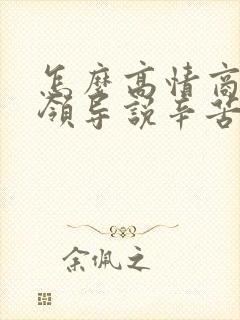 怎麼高情商
領导説辛苦
余佩之